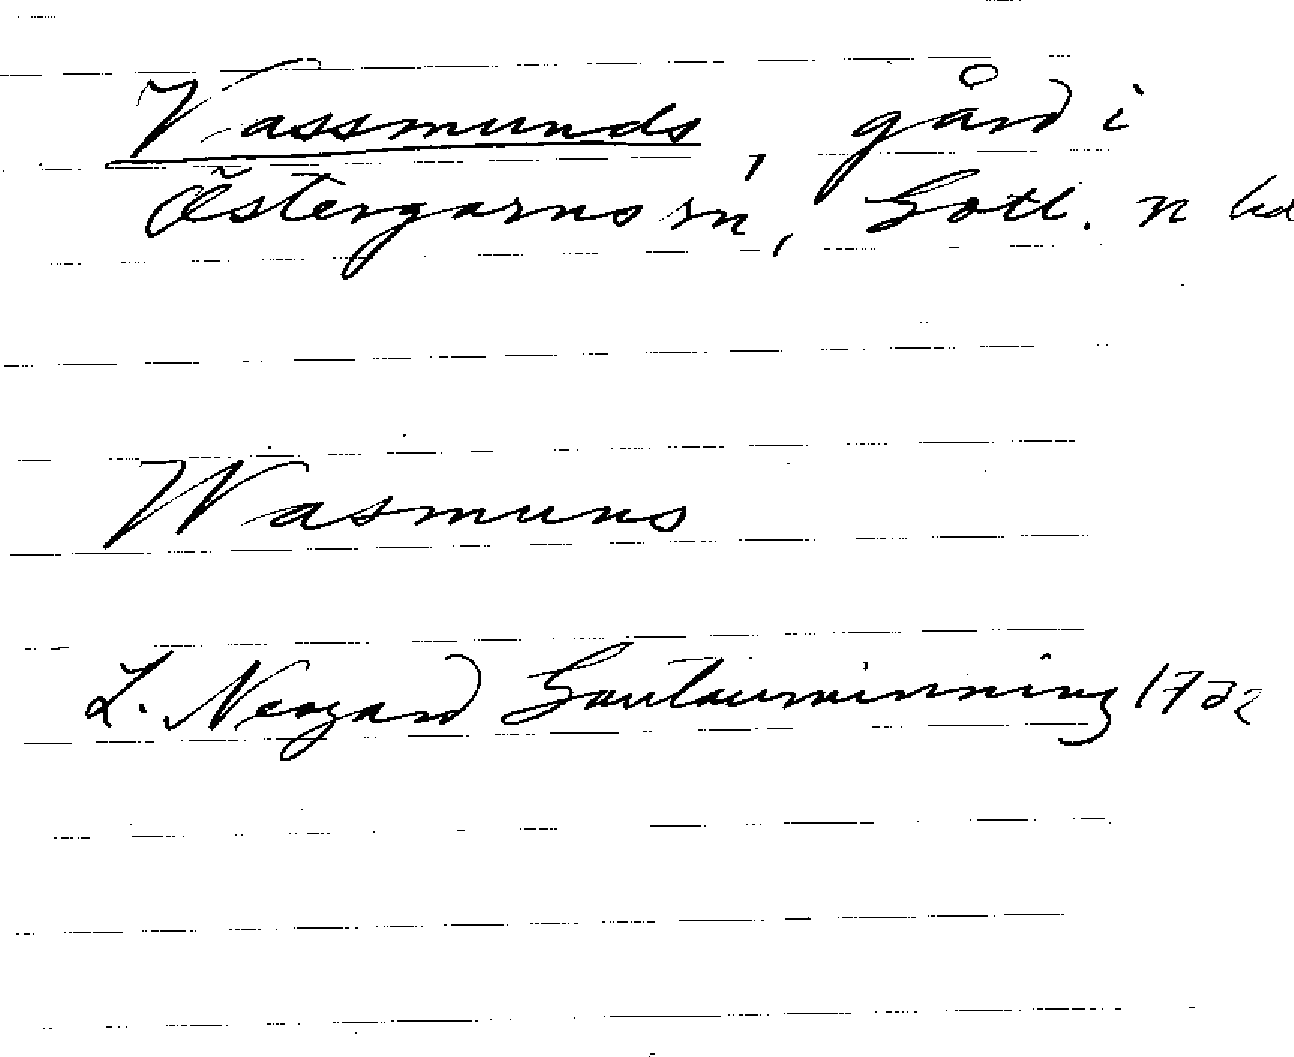 Vassmunds, gård i
Östergarns sn, Gotl. n hd
Wasmuns
L. Neogard Gautauminning 1732